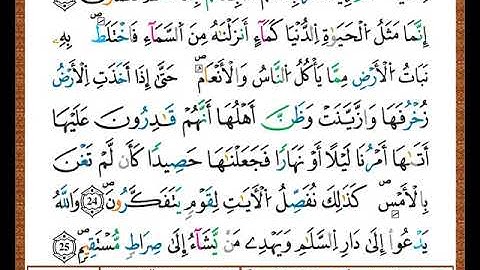 إِنَّمَا مَثَلُ الْحَيَوٰةِ الدُّنْيَا كَمَآءٍ أَنزَلْنَٰهُ مِنَ السَّمَآءِ فَاخْتَلَطَ بِهِۦ
نَبَاتُ الْأَرْضِ مِمَّا يَأْكُلُ النَّاسُ وَالْأَنْعَٰمُ حَتَّىٰٓ إِذَآ أَخَذَتِ الْأَرْضُ
زُخْرُفَهَا وَازَّيَّنَتْ وَظَنَّ أَهْلُهَآ أَنَّهُمْ قَٰدِرُونَ عَلَيْهَآ
أَتَىٰهَآ أَمْرُنَا لَيْلًا أَوْ نَهَارًا فَجَعَلْنَٰهَا حَصِيدًا كَأَن لَّمْ تَغْنَ
بِالْأَمْسِ كَذَٰلِكَ نُفَصِّلُ الْآيَٰتِ لِقَوْمٍ يَتَفَكَّرُونَ 24 وَاللَّهُ
يَدْعُوٓا۟ إِلَىٰ دَارِ السَّلَٰمِ وَيَهْدِى مَن يَشَآءُ إِلَىٰ صِرَٰطٍ مُّسْتَقِيمٍ 25